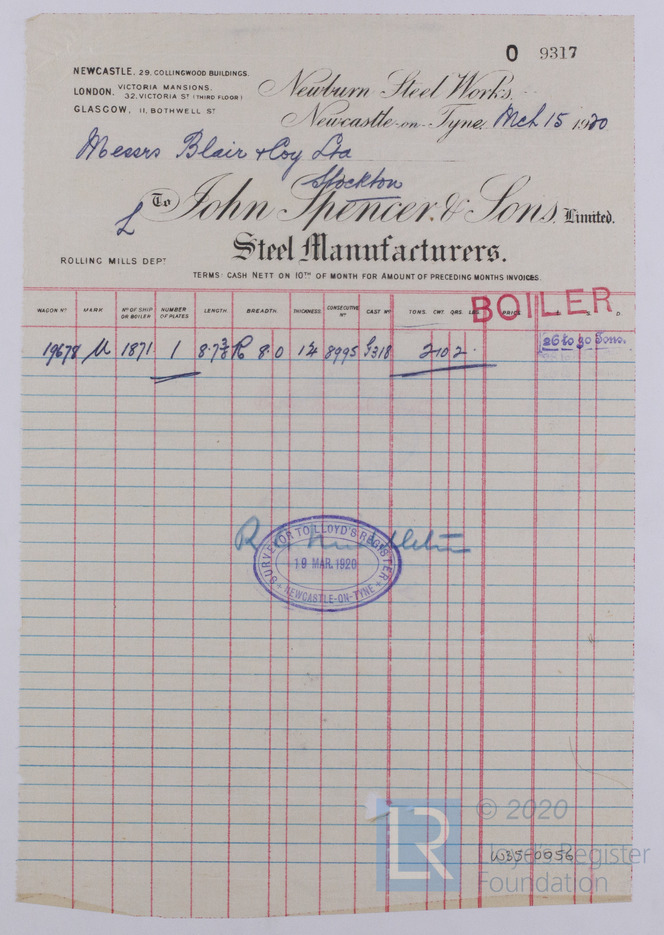 O 9317
NEWCASTLE, 29, COLLINGWOOD BUILDINGS.
LONDON, VICTORIA MANSIONS, 32, VICTORIA ST (THIRD FLOOR)
GLASGOW, 11, BOTHWELL ST
Newburn Steel Works,
Newcastle-on-Tyne, Mch 15 1920
Messrs Blair & Coy Ltd
Stockton
To John Spencer & Sons, Limited.
Steel Manufacturers.
ROLLING MILLS DEPT
TERMS: CASH NETT ON 10TH OF MONTH FOR AMOUNT OF PRECEDING MONTHS INVOICES.
BOILER.
WAGON No MARK No OF SHIP OR BOILER NUMBER OF PLATES LENGTH BREADTH. THICKNESS CONSECUTIVE No CAST No TONS. CWT. QRS. PRICE D.
19678 1871 1 8·7⅜ R 8·0 8995 2 10 2
26 to 30 Tons.
SURVEYOR TO LLOYD'S REGISTER
19 MAR. 1920
NEWCASTLE-ON-TYNE
LR
© 2020
Lloyd's Register
Foundation
W35-0056